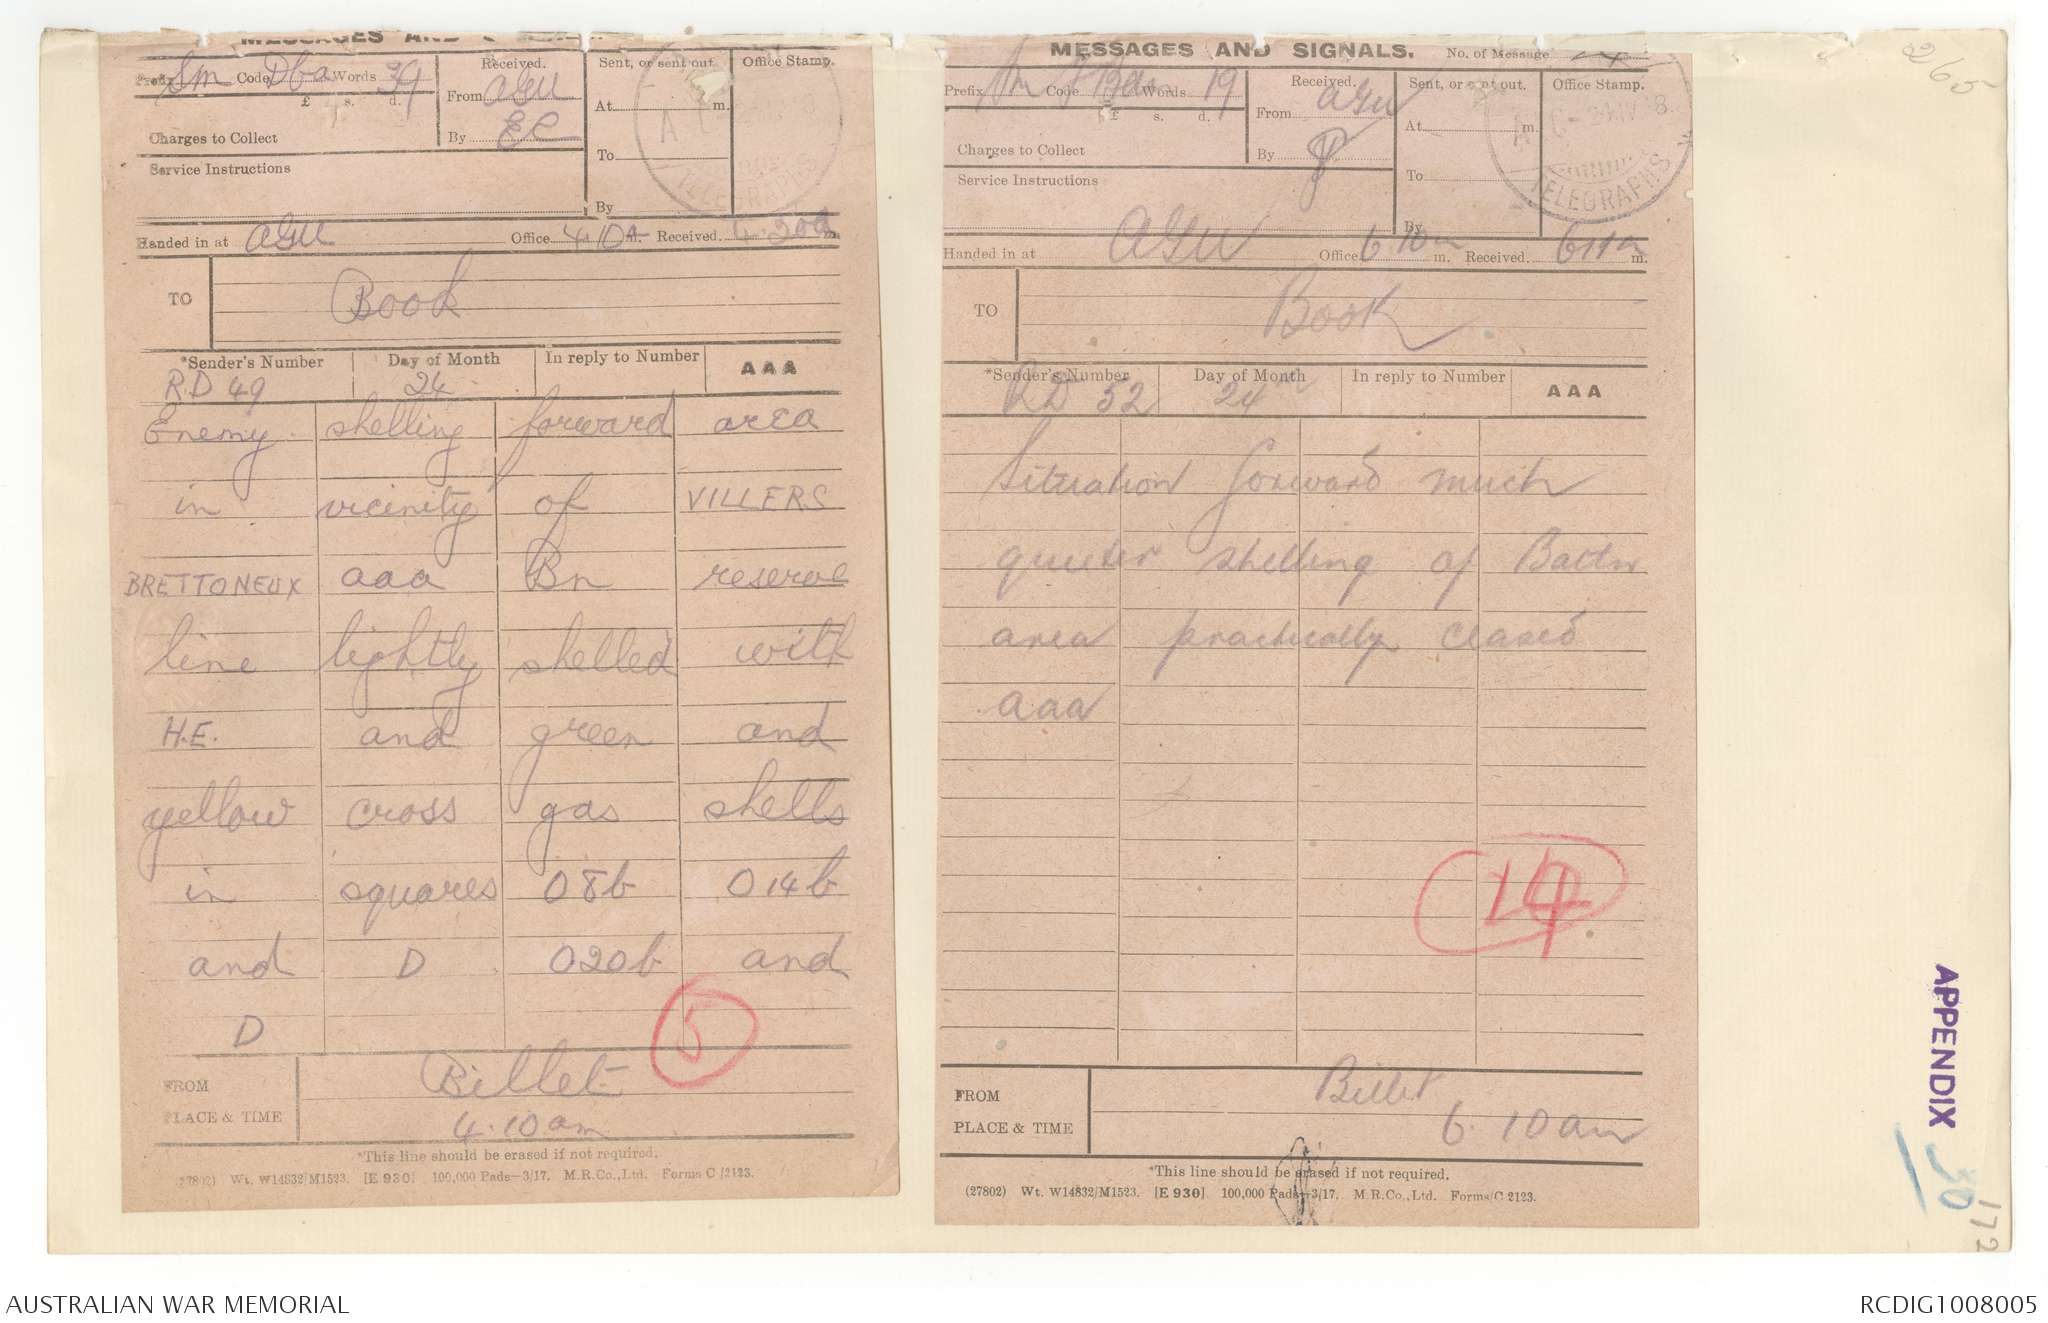 MESSAGES AND
Prefix Sm Code Dba Words 39
£ s. d.
Charges to Collect
Service Instructions
Received.
From AGU
By EC
Sent, or sent out.
At m.
To
By
Office Stamp.
TELEGRAPHS
Handed in at AGU Office 4.10 A m. Received 4.20a m.
TO Book
*Sender's Number Day of Month In reply to Number AAA
R.D 49 24
Enemy shelling forward area
in vicinity of VILLERS
BRETTONEUX aaa Bn reserve
line lightly shelled with
H.E. and green and
yellow cross gas shells
in squares O8b O14b
and D O20b and
D
5
FROM Billet
PLACE & TIME 4.10 am
*This line should be erased if not required.
(27802) Wt. W14832/M1523. [E 930] 100,000 Pads—3/17. M.R.Co., Ltd. Forms C/2123.
MESSAGES AND SIGNALS. No. of Message
Prefix Sm Code Words 19
£ s. d.
Charges to Collect
Service Instructions
Received.
From AGU
By
Sent, or sent out.
At m.
To
By
Office Stamp.
TELEGRAPHS
Handed in at AGU Office 6 10a m. Received. 611a m.
TO Book
*Sender's Number Day of Month In reply to Number AAA
RD 52 24
Situation forward much
quieter shelling of Battn
area practically ceased
aaa
14
FROM Billet
PLACE & TIME 6.10am
*This line should be erased if not required.
(27802) Wt. W14832/M1523. [E 930] 100,000 Pads—3/17. M.R.Co., Ltd. Forms/C 2123.
265
APPENDIX 30
172
AUSTRALIAN WAR MEMORIAL
RCDIG1008005